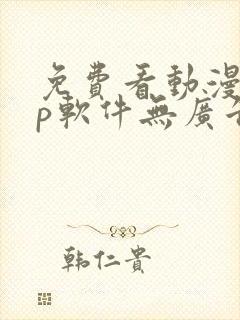 免費看動漫
p軟件無廣告
韩仁貴